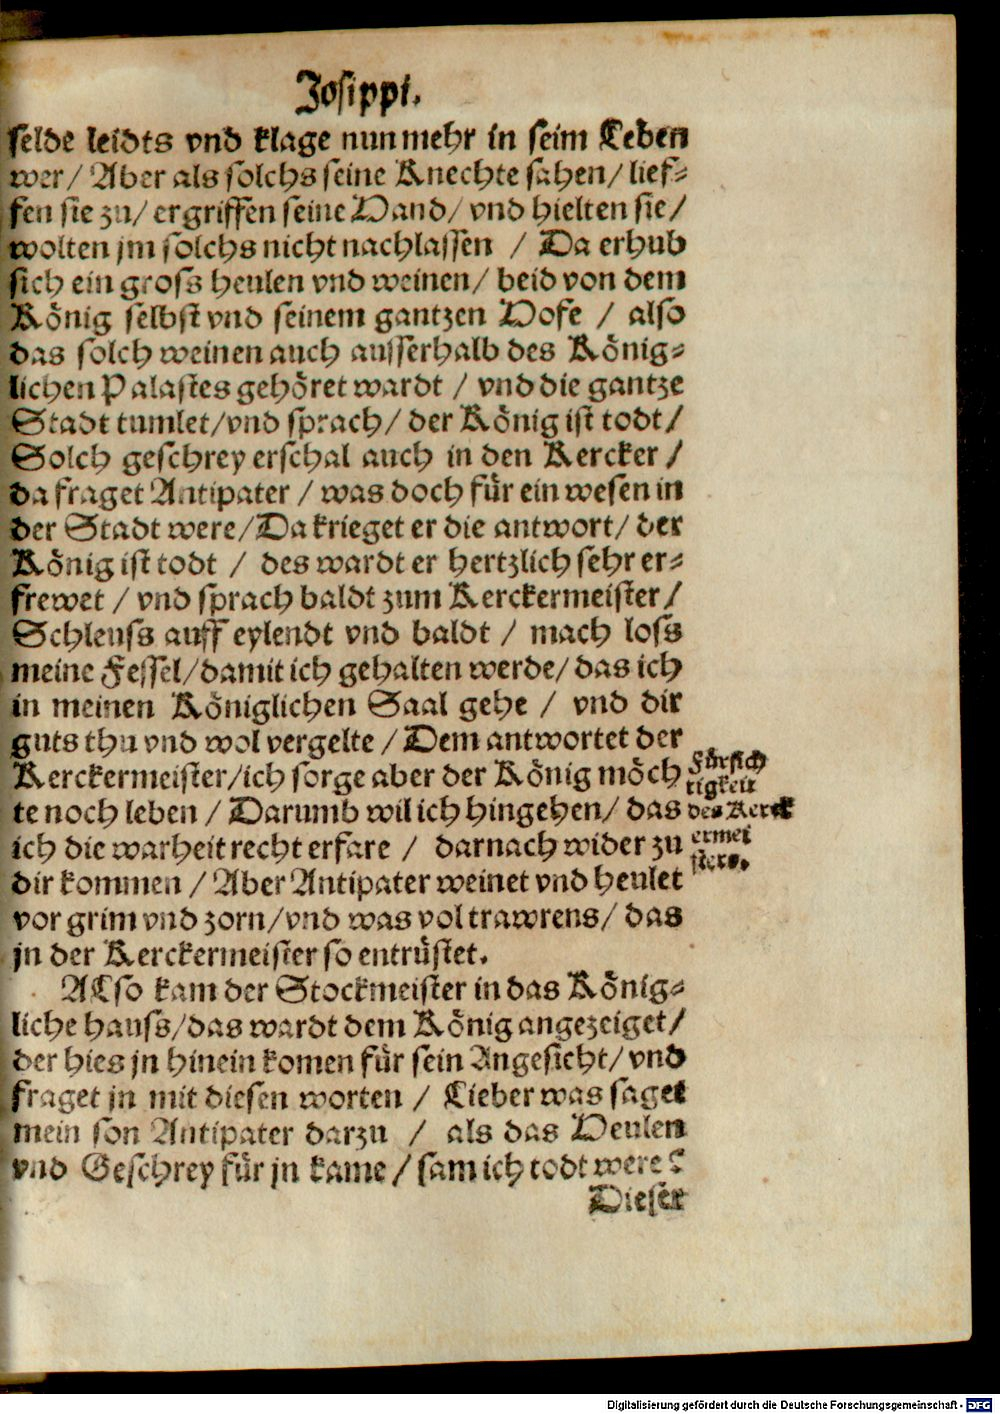 Josippi.
selde leidts vnd klage nun mehr in seim Leben
wer/ Aber als solchs seine Knechte sahen/ lief-
fen sie zu/ ergriffen seine Hand/ vnd hielten sie/
wolten jm solchs nicht nachlassen / Da erhub
sich ein gross heulen vnd weinen/ beid von dem
König selbst vnd seinem gantzen Hofe / also
das solch weinen auch ausserhalb des König-
lichen Palastes gehöret wardt / vnd die gantze
Stadt tumlet/vnd sprach/ der König ist todt/
Solch geschrey erschal auch in den Kercker /
da fraget Antipater / was doch für ein wesen in
der Stadt were/Da krieget er die antwort/ der
König ist todt / des wardt er hertzlich sehr er-
frewet / vnd sprach baldt zum Kerckermeister/
Schleuss auff eylendt vnd baldt / mach loss
meine Fessel/damit ich gehalten werde/ das ich
in meinen Königlichen Saal gehe / vnd dir
guts thu vnd wol vergelte / Dem antwortet der
Kerckermeister/ich sorge aber der König möch
te noch leben / Darumb wil ich hingehen/ das
ich die warheit recht erfare / darnach wider zu
dir kommen / Aber Antipater weinet vnd heulet
vor grim vnd zorn/vnd was vol trawrens/ das
jn der Kerckermeister so entrüstet.
ALso kam der Stockmeister in das König-
liche hauss/das wardt dem König angezeiget/
der hies jn hinein komen für sein Angesicht/ vnd
fraget jn mit diesen worten / Lieber was saget
mein son Antipater darzu / als das Heulen
vnd Geschrey für jn kame / sam ich todt were?
Dieser
Fürsich
tigkeit
des Kerck
ermei
sters.
Digitalisierung gefördert durch die Deutsche Forschungsgemeinschaft - DFG